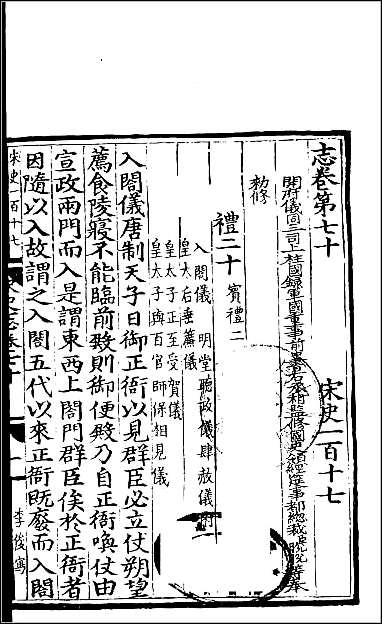 志卷第七十 宋史一百十七
開府儀同三司上柱國錄軍國重事前中書右丞相監修國史領經筵事都總裁脫脫等奉
勑修
禮二十 賓禮二
入閤儀 明堂聽政儀 肆赦儀附
皇太后垂簾儀
皇太子正至受賀儀
皇太子與百官師保相見儀
入閤儀唐制天子日御正衙以見群臣必立仗朔望
薦食陵寢不能臨前殿則御便殿乃自正衙喚仗由
宣政兩門而入是謂東西上閤門群臣俟於正衙者
因隨以入故謂之入閤五代以來正衙既廢而入閤
宋史一百十七
李俊寫